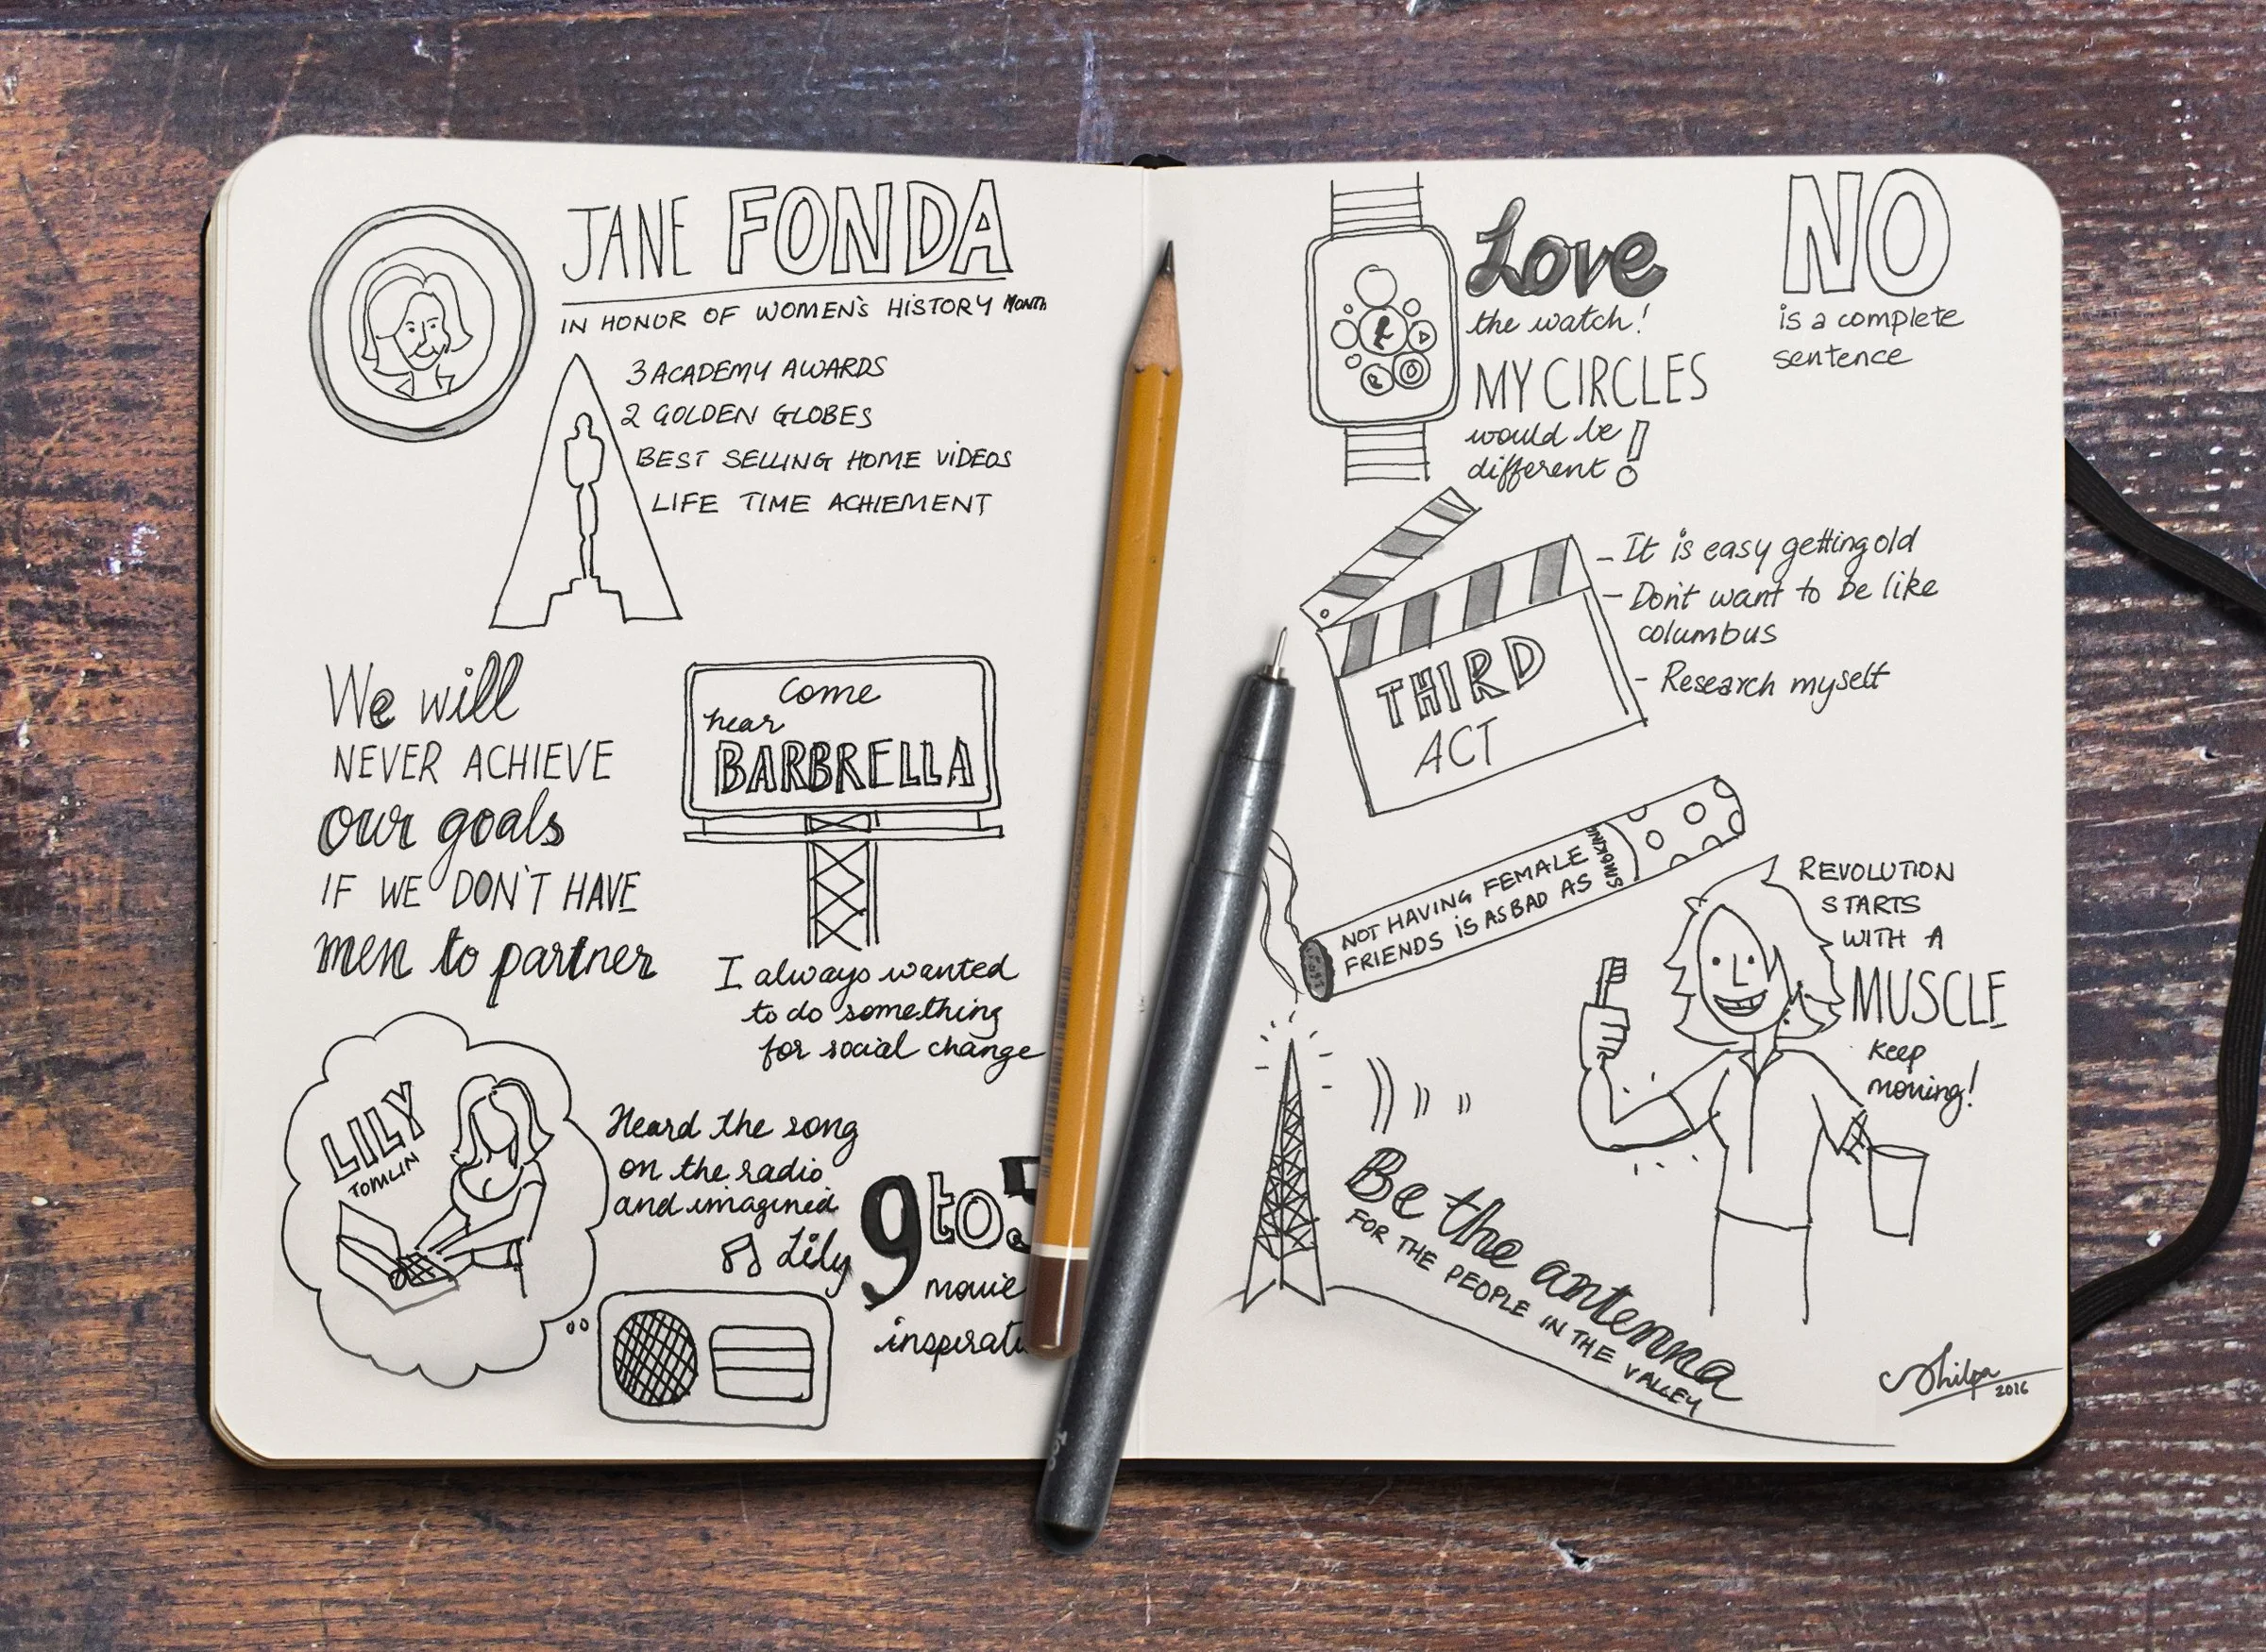 JANE FONDA
IN HONOR OF WOMEN'S HISTORY MONTH
3 ACADEMY AWARDS
2 GOLDEN GLOBES
BEST SELLING HOME VIDEOS
LIFE TIME ACHIEMENT
We will
NEVER ACHIEVE
our goals
IF WE DON'T HAVE
men to partner
come
hear
BARBRELLA
I always wanted
to do something
for social change
LILY
TOMLIN
Heard the song
on the radio
and imagined
Lily
9to5
movie
inspirati
Love
the watch!
MY CIRCLES
would be
different!
NO
is a complete
sentence
THIRD
ACT
- It is easy getting old
- Don't want to be like
columbus
- Research myself
NOT HAVING FEMALE
FRIENDS IS AS BAD AS
SMOKING
REVOLUTION
STARTS
WITH A
MUSCLE
Keep
moving!
Be the antenna
FOR THE PEOPLE IN THE VALLEY
Shilpa
2016